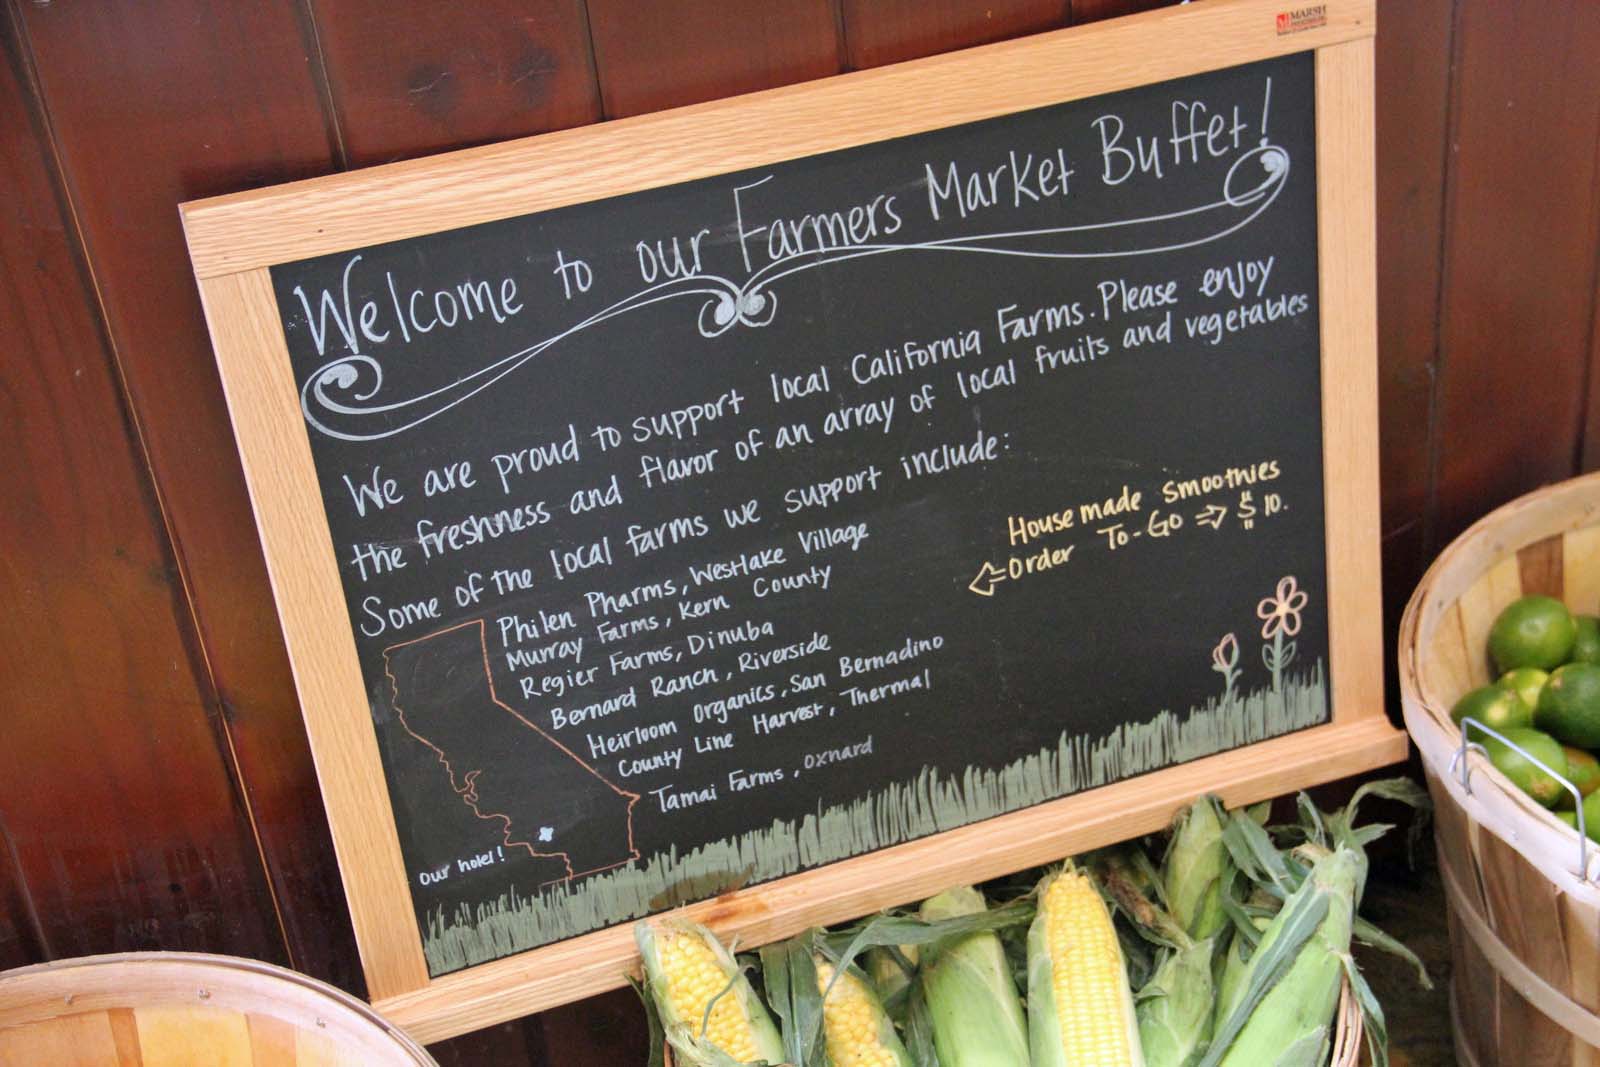 MARSH
Welcome to our Farmers Market Buffet!
We are proud to support local California Farms. Please enjoy
the freshness and flavor of an array of local fruits and vegetables
Some of the local farms we support include:
Philen Pharms, Westlake Village
Murray Farms, Kern County
Regier Farms, Dinuba
Bernard Ranch, Riverside
Heirloom Organics, San Bernadino
County Line Harvest, Thermal
Tamai Farms, Oxnard
our hotel!
House made smoothies
⇐ Order To-Go ⇒ $10.